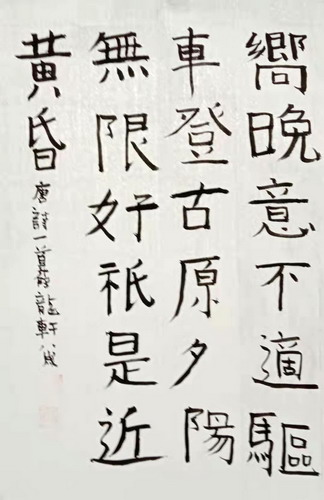 嚮晚意不適驅
車登古原夕陽
無限好祇是近
黃昏
唐詩一首 龍軒 八歲